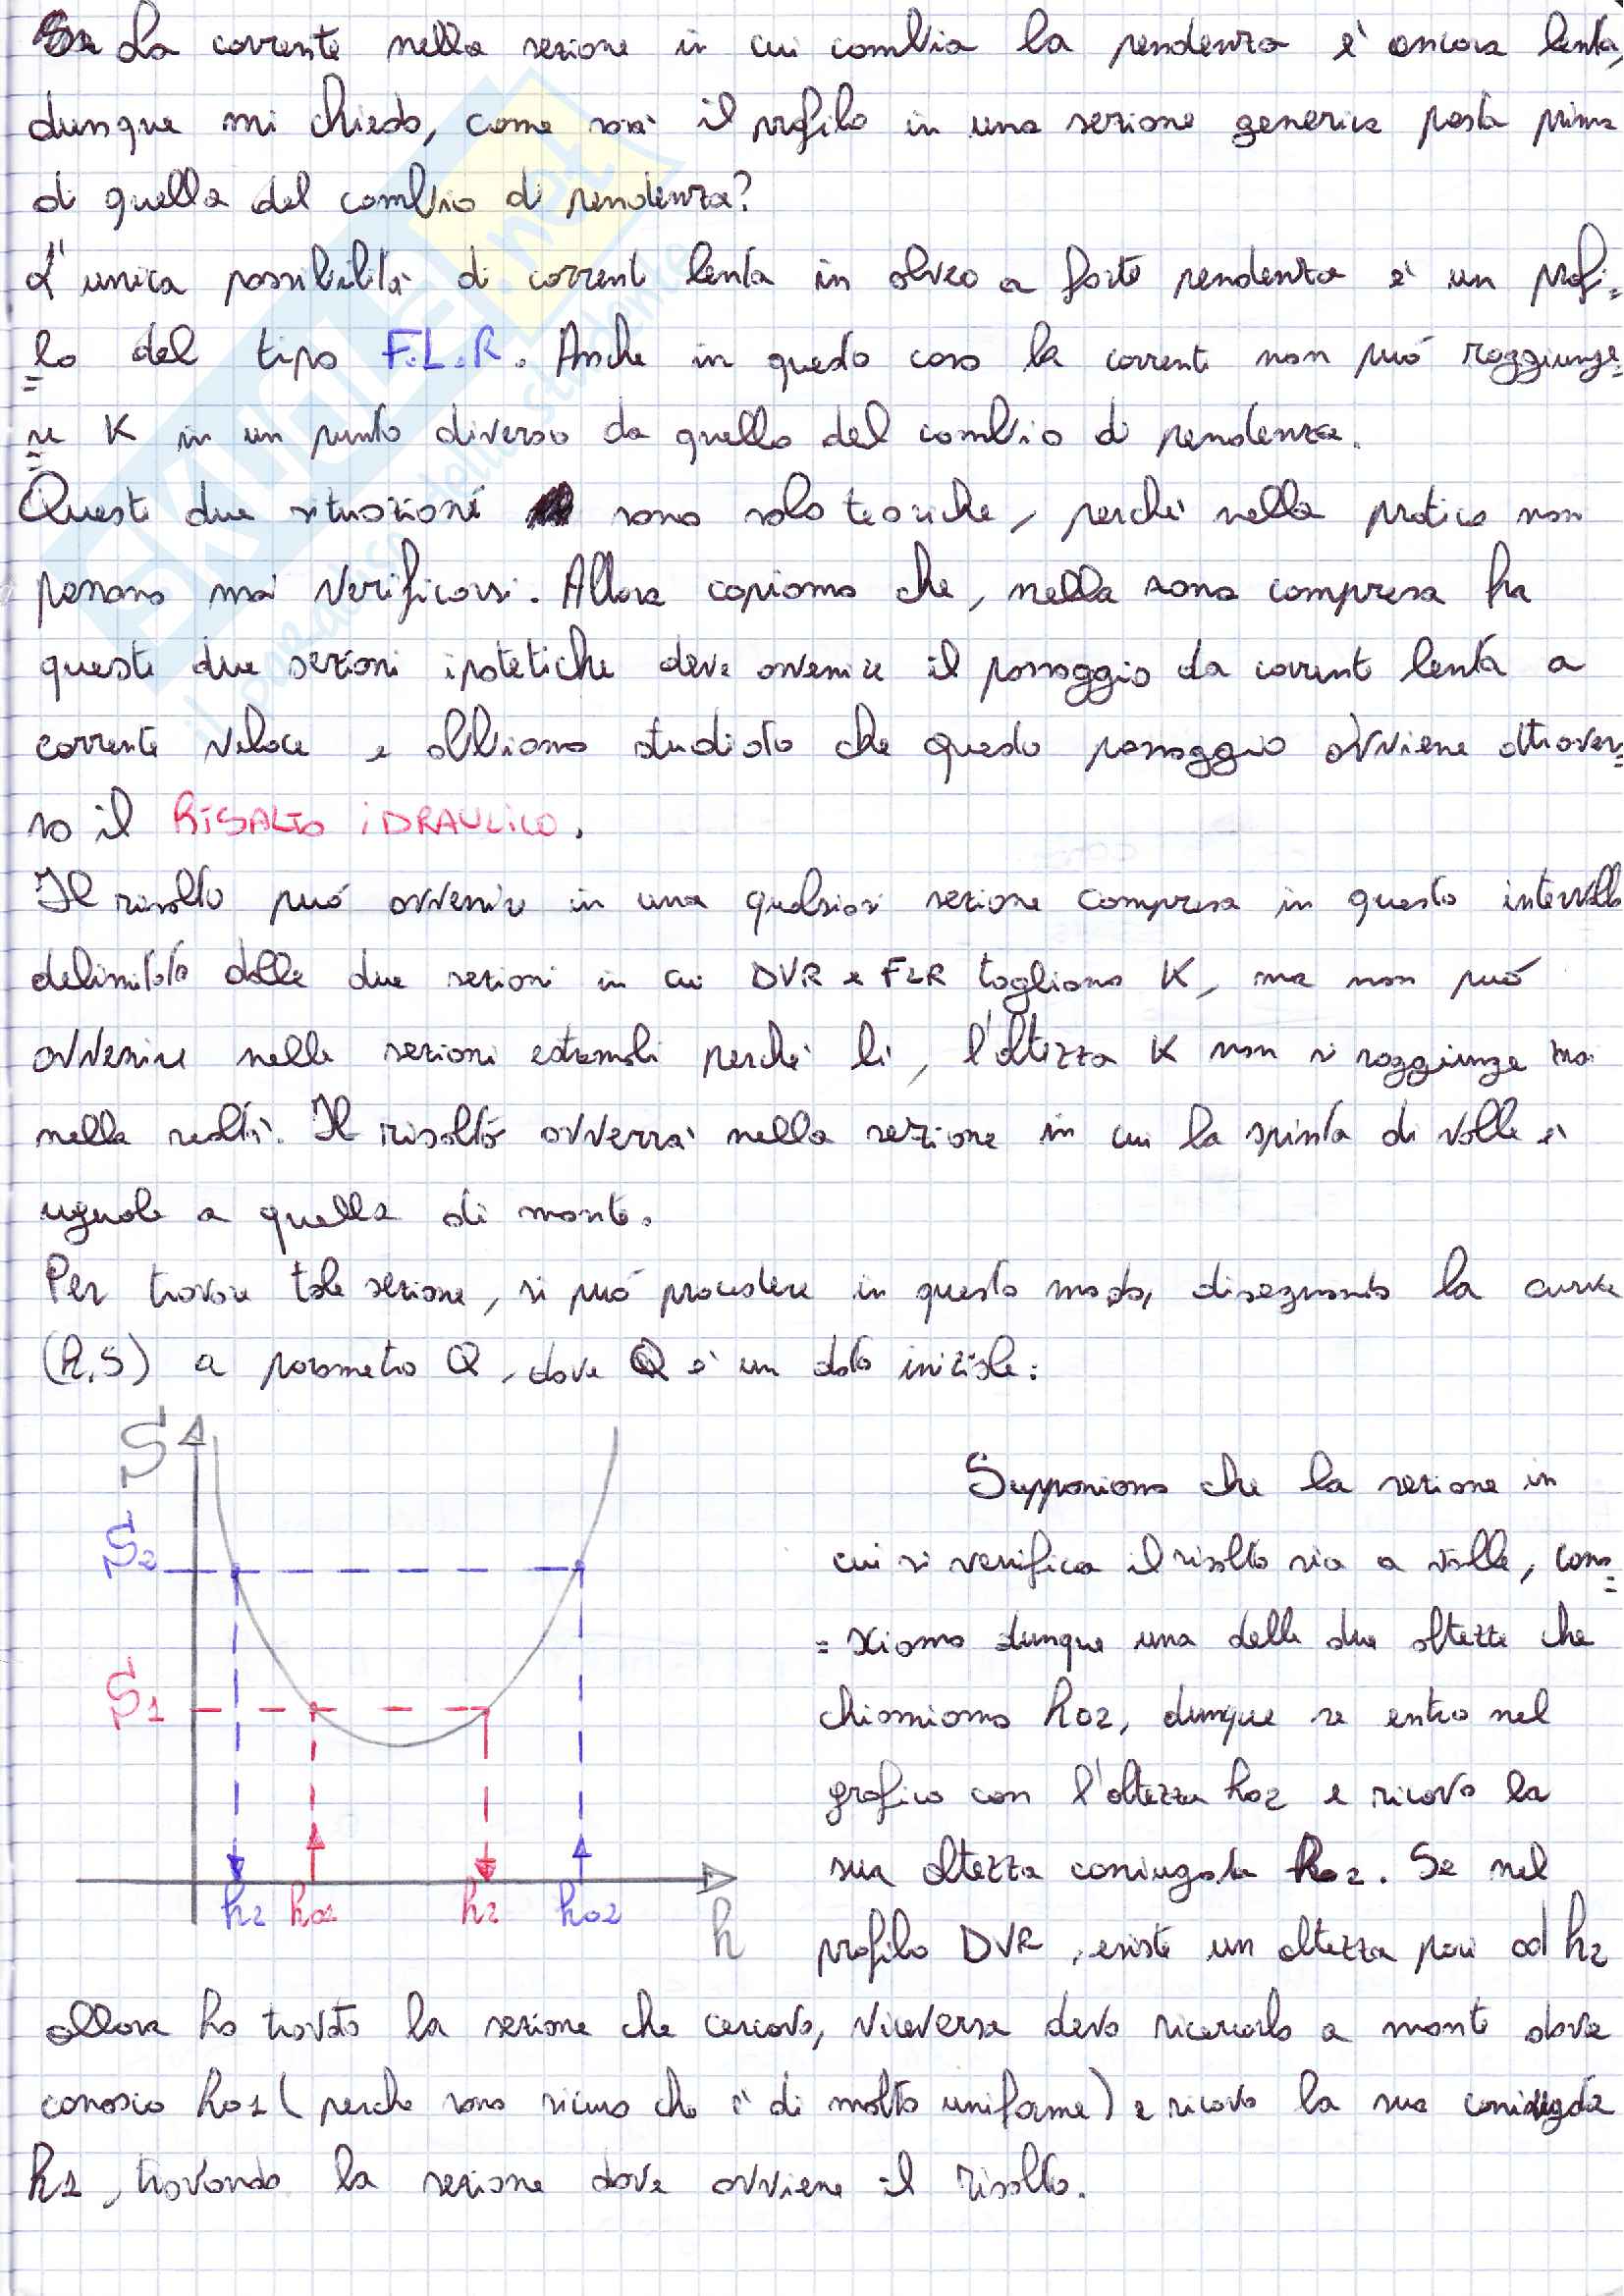 La corrente nella sezione in cui cambia la pendenza e' ancora lenta,
dunque mi chiedo, come sarà il profilo in una sezione generica posta prima
di quella del cambio di pendenza?
L'unica possibilità di corrente lenta in alveo a forte pendenza e' un profi=
=lo del tipo F.L.R. Anche in questo caso la corrente non può raggiunge=
=re K in un punto diverso da quello del cambio di pendenza.
Queste due situazioni sono solo teoriche, perché nella pratica non
possono mai verificarsi. Allora capiamo che, nella zona compresa fra
queste due sezioni ipotetiche deve avvenire il passaggio da corrente lenta a
corrente veloce e abbiamo studiato che questo passaggio avviene attraver=
so il RISALTO IDRAULICO.
Il risalto può avvenire in una qualsiasi sezione compresa in questo intervallo
delimitato dalle due sezioni in cui DVR e FLR tagliano K, ma non può
avvenire nelle sezioni estremali perché lì, l'altezza K non si raggiunge mai
nella realtà. Il risalto avverrà nella sezione in cui la spinta di valle e'
uguale a quella di monte.
Per trovare tale sezione, si può procedere in questo modo, disegnando la curva
(h,S) a parametro Q, dove Q e' un dato iniziale:
S
S2
S1
h2 h01 h2 h02
h
Supponiamo che la sezione in
cui si verifica il risalto sia a valle, cono=
=sciamo dunque una delle due altezze che
chiamiamo h02, dunque se entro nel
grafico con l'altezza h02 e ricavo la
sua altezza coniugata h02. Se nel
profilo DVR, esiste un altezza pari ad h2
allora ho trovato la sezione che cercavo, viceversa devo ricercarlo a monte dove
conosco h01 (perche sono sicuro che e' di moto uniforme) e ricavo la sua coniugata
h1, trovando la sezione dove avviene il risalto.